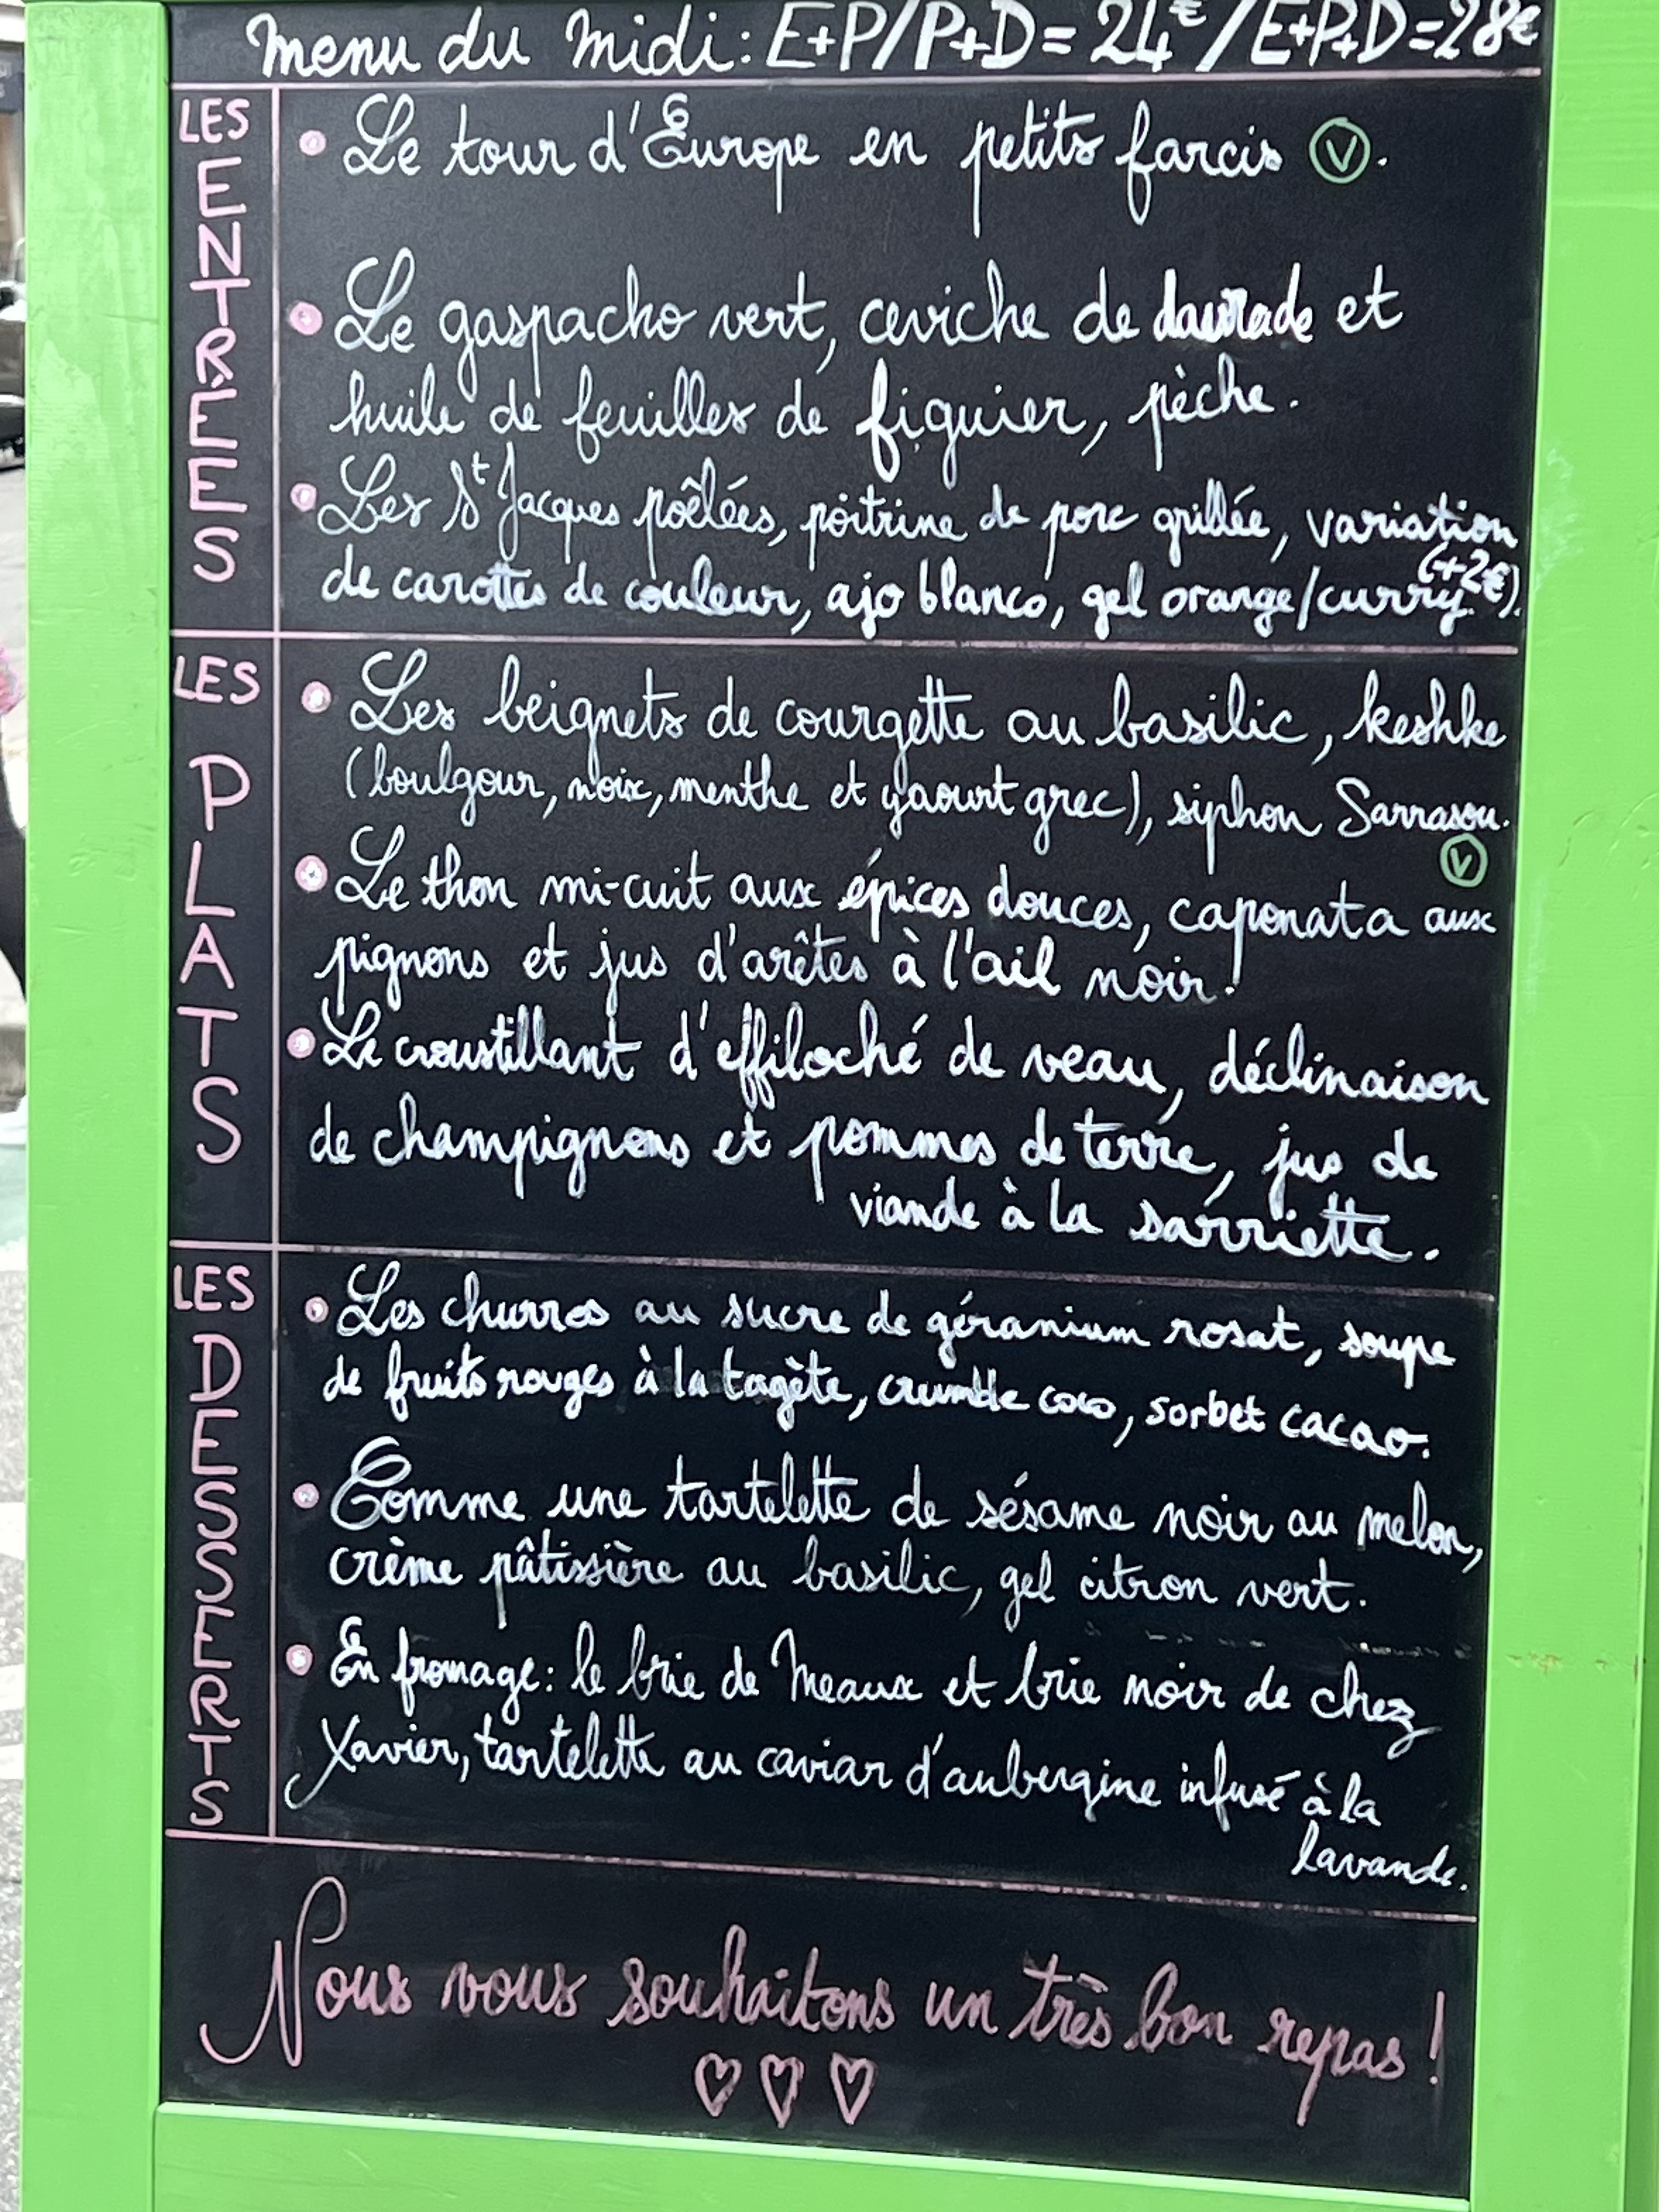 menu du midi: E+P/P+D=24€/E+P+D=28€
LES ENTRÉES
• Le tour d'Europe en petits farcis Ⓥ.
• Le gaspacho vert, ceviche de daurade et
huile de feuilles de figuier, pèche.
• Les St Jacques poêlées, poitrine de porc grillée, variation
de carottes de couleur, ajo blanco, gel orange/curry (+2€).
LES PLATS
• Les beignets de courgette au basilic, keshke
(boulgour, noix, menthe et yaourt grec), siphon Sarrasou.
Ⓥ
• Le thon mi-cuit aux épices douces, caponata aux
pignons et jus d'arêtes à l'ail noir.
• Le croustillant d'effiloché de veau, déclinaison
de champignons et pommes de terre, jus de
viande à la sarriette.
LES DESSERTS
• Les churros au sucre de géranium rosat, soupe
de fruits rouges à la tagète, crumble coco, sorbet cacao.
• Comme une tartelette de sésame noir au melon,
crème pâtissière au basilic, gel citron vert.
• En fromage: le brie de Meaux et brie noir de chez
Xavier, tartelette au caviar d'aubergine infusé à la
lavande.
Nous vous souhaitons un très bon repas!
♡ ♡ ♡